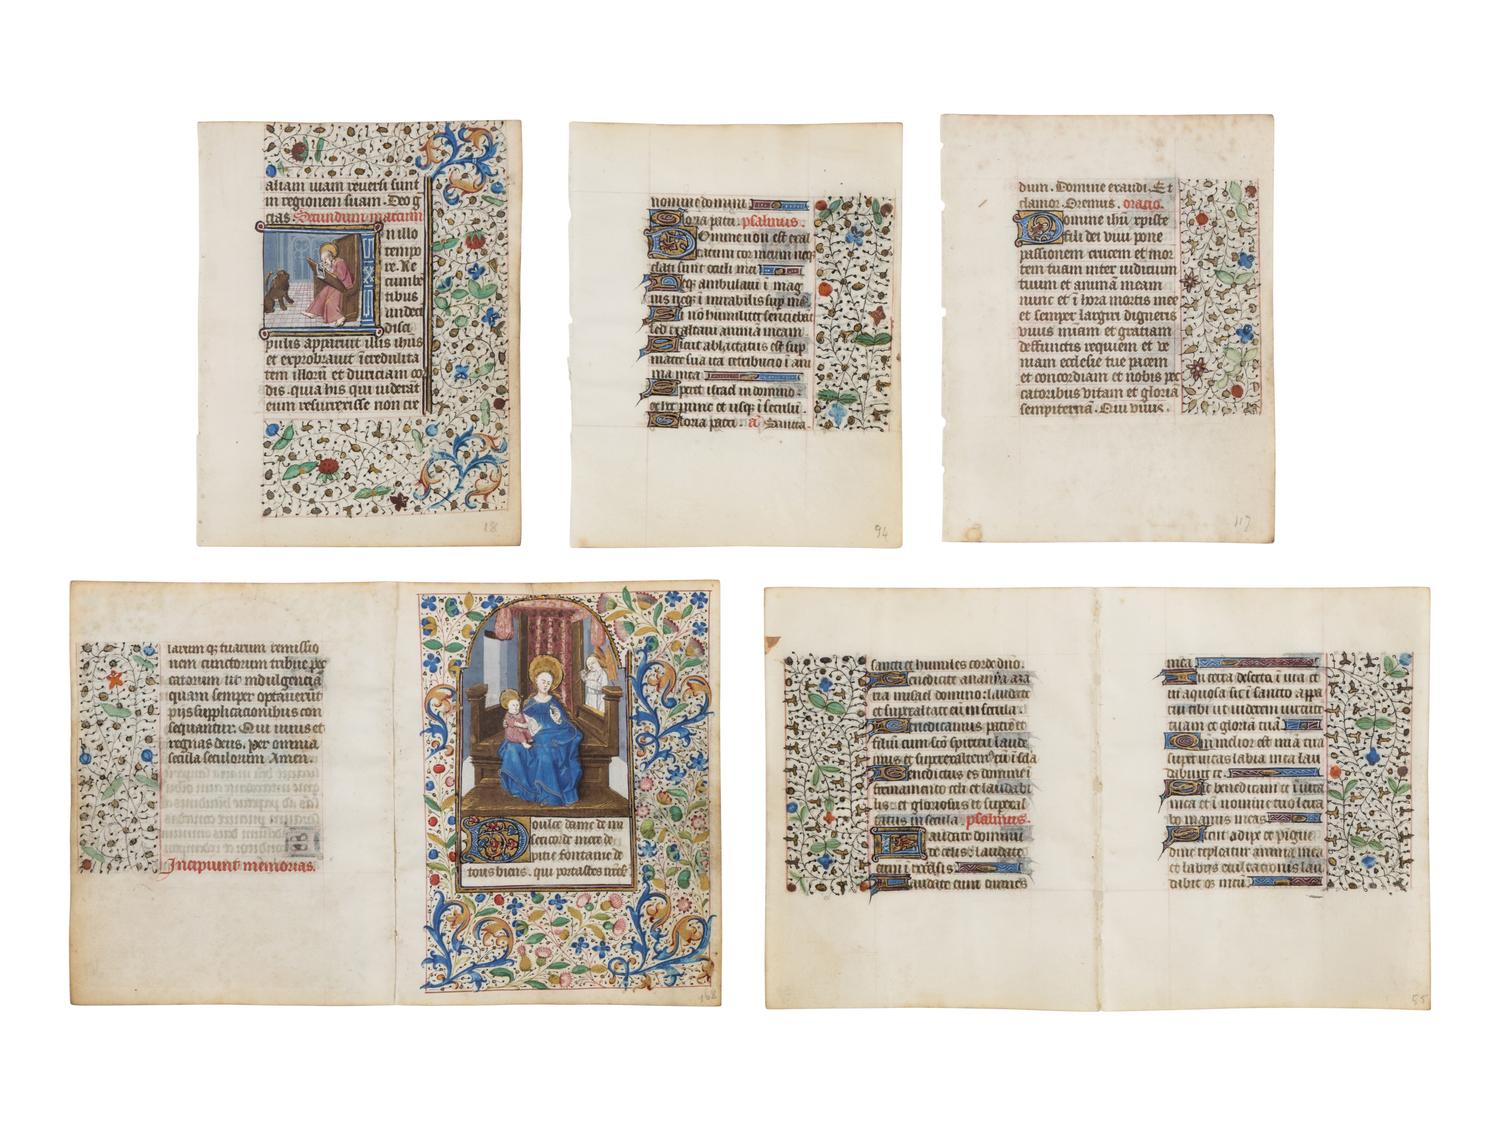 aliam uiam reuersi sunt
in regionem suam. Deo g
cias Secundum marcum
n illo
tempo
re. Re
cumbe
tibus
undeci
disci
pulis apparuit illis ihus
et exprobrauit icredulita
tem illorū et duriciam co
dis. quia his qui uiderāt
eum resurrexisse non cre
18
nomine domini
Gloria patri. psalmus.
Domine non est exal
tatum cor meum neq
elati sunt oculi mei
Neq ambulaui ī mag
nis neq ī mirabilib sup me
Si nō humiliter sentiebā
sed exaltaui animā meam
Sicut ablactatus est sup
matre sua ita retributio ī ani
ma mea
Speret israel in domino
ex hoc nunc et usq ī seculū
Gloria patri. añ Sancta
94
dium. Domine exaudi. Et
clamor. Oremus. oracio.
Domine ihū xpiste
fili dei uiui pone
passionem crucem et mor
tem tuam inter iudicium
tuum et animā meam
nunc et ī hora mortis mee
et semper largiri digneris
viuis miam et gratiam
deffunctis requiem et ve
niam ecclesie tue pacem
et concordiam et nobis pec
catoribus vitam et gloriā
sempiternā. Qui viuis.
117
larum q tuarum remissio
nem cunctorum tribue pec
catorum ut indulgenciā
quam semper optauerūt
piis supplicationibus con
sequantur. Qui uiuis et
regnas deus. per omnia
secula seculorum Amen.
Incipiunt memorias.
Doulce dame de mi
sericorde mere de
pitie fontaine de
tous biens. qui portastes
168
sancti et humiles corde dño.
Benedicite anania aza
ria misael domino: laudate
et superexaltate eū in secula
Benedicamus patrē et
filiū cum scō spiritu laude
mus et superexaltem eū ī scła
Benedictus es domine ī
firmamento celi et laudabi
lis et gloriosus et superexal
tatus in secula. psalmus.
Laudate dominū
de celis: laudate
eum ī excelsis
Laudate eum
mea
In terra deserta ī uia et
ī aquosa sic ī sancto appa
rui tibi ut uiderem uirtutē
tuam et gloriā tuā
Qm melior est mīa tua
super uitas labia mea lau
dabunt te
Sic benedicam te ī uita
mea et ī nomine tuo leua
bo manus meas
Sicut adipe et pigue
dine repleatur anima mea
et labiis exultacionis lau
dabit os meū
55